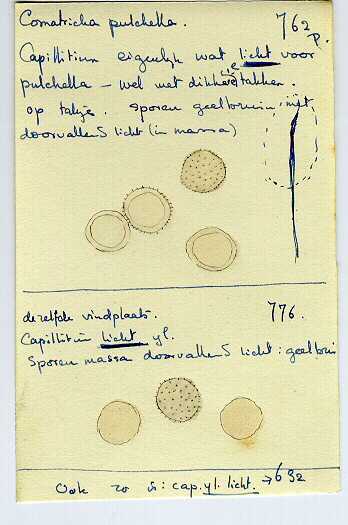 Comatricha pulchella. 762 p.
Capillitium eigenlijk wat licht voor
pulchella – wel met dikkere takken.
op takje. Sporen geelbruin met
doorvallend licht (in massa)
dezelfde vindplaats. 776.
Capillitium licht yl.
Sporen massa doorvallend licht: geelbruin
Ook zo is: cap. yl. licht. → 692